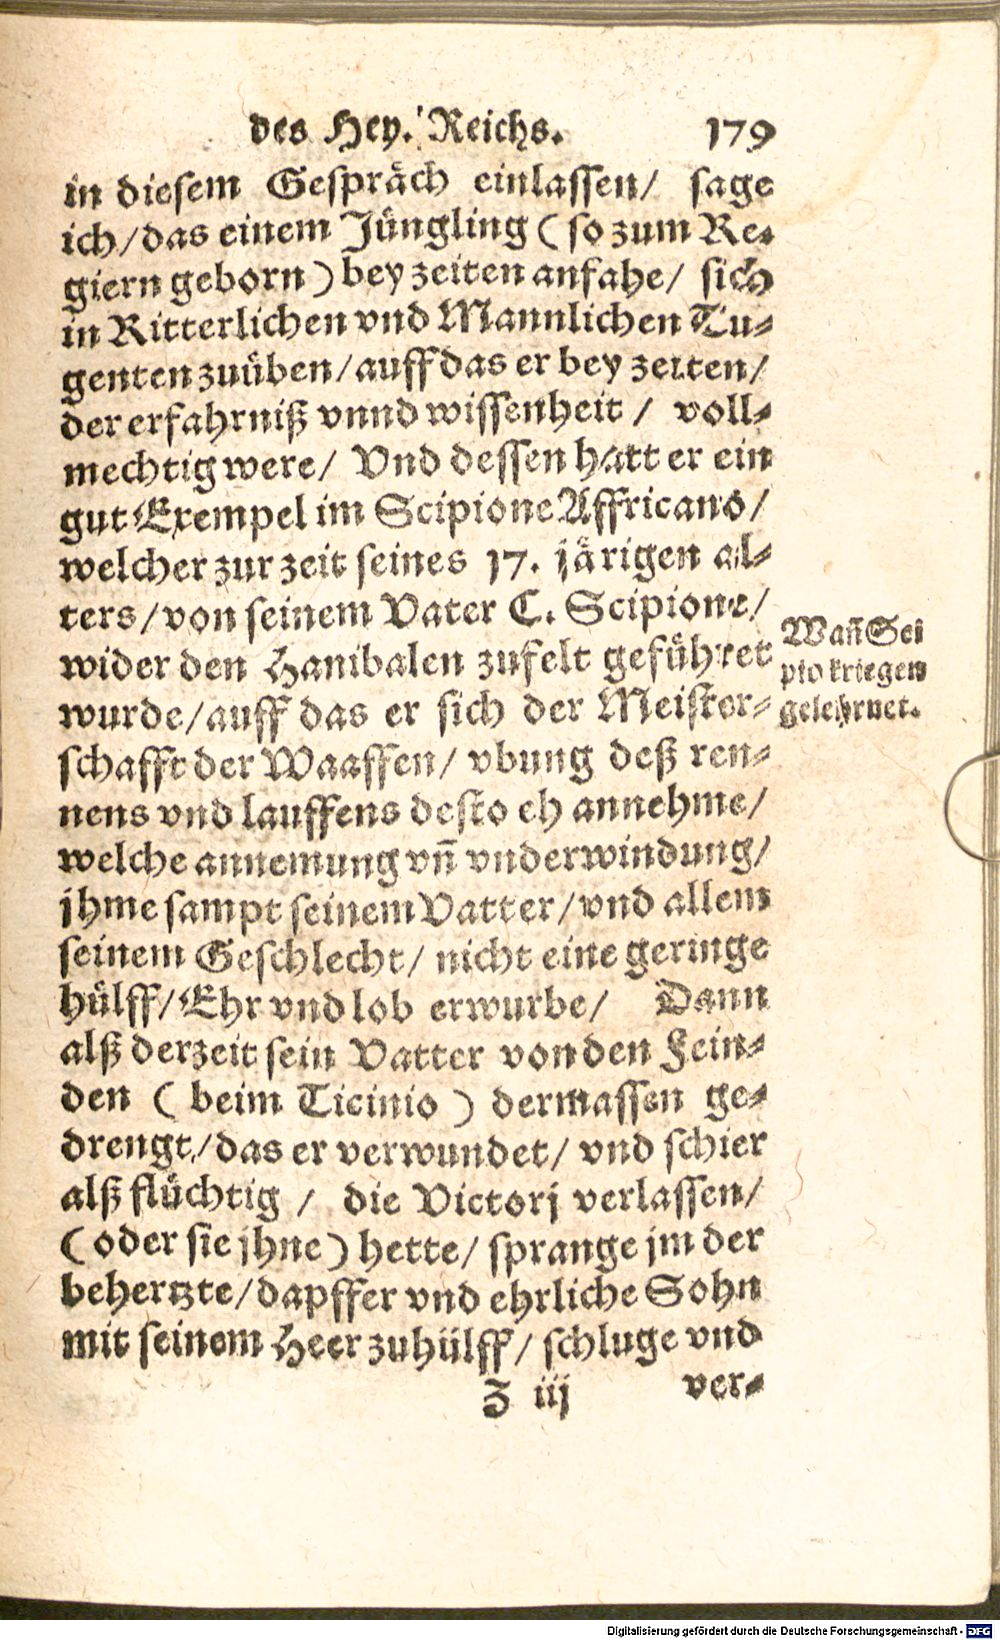 des Hey. Reichs. 179
in diesem Gespräch einlassen/ sage
ich/das einem Jüngling (so zum Re-
giern geborn) bey zeiten anfahe/ sich
in Ritterlichen vnd Mannlichen Tu-
genten zuüben/auff das er bey zeiten/
der erfahrniß vnnd wissenheit / voll-
mechtig were/ Vnd dessen hatt er ein
gut Exempel im Scipione Affricano/
welcher zur zeit seines 17. järigen al-
ters/von seinem Vater C. Scipione/
wider den Hanibalen zufelt geführet
wurde/auff das er sich der Meister-
schafft der Waaffen/ vbung deß ren-
nens vnd lauffens desto eh annehme/
welche annemung vn̄ vnderwindung/
jhme sampt seinem Vatter/vnd allem
seinem Geschlecht/ nicht eine geringe
hülff/Ehr vnd lob erwurbe/ Dann
alß derzeit sein Vatter von den Fein-
den ( beim Ticinio ) dermassen ge-
drengt/das er verwundet/ vnd schier
alß flüchtig / die Victorj verlassen/
(oder sie jhne) hette/ sprange jm der
behertzte/dapffer vnd ehrliche Sohn
mit seinem Heer zuhülff/ schluge vnd
Z iij ver-
Wan̄ Sci
pio kriegen
gelehrnet.
Digitalisierung gefördert durch die Deutsche Forschungsgemeinschaft - DFG